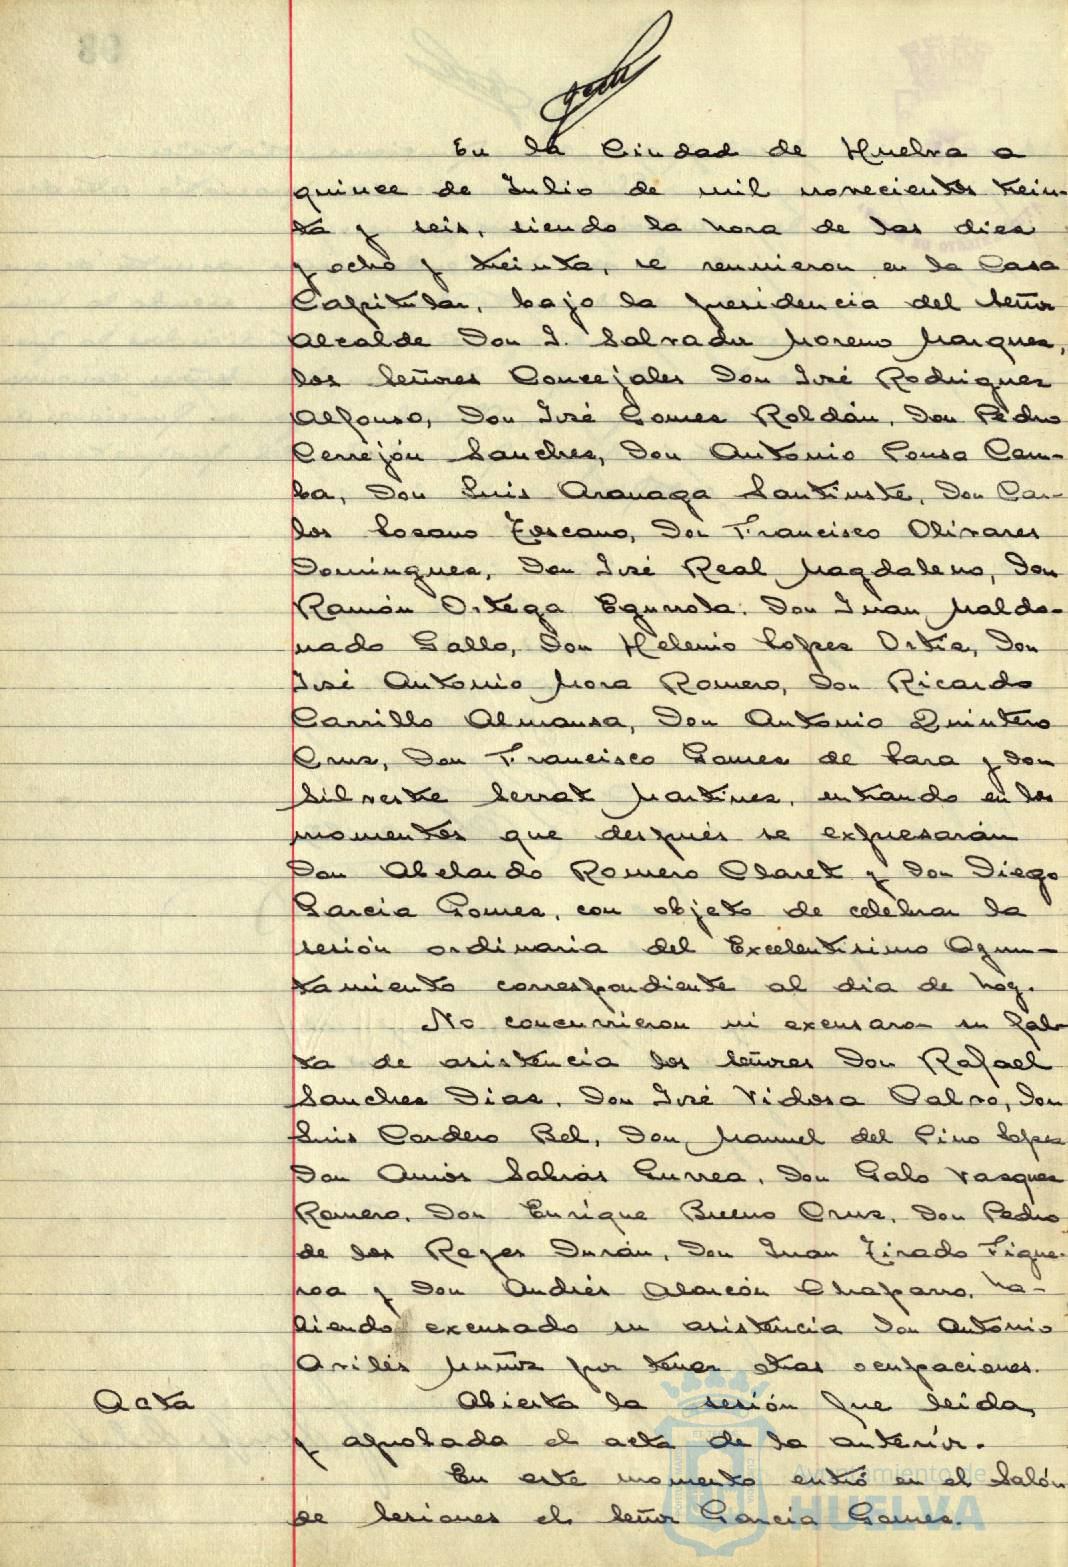 En la Ciudad de Huelva a
quince de Julio de mil novecientos trein-
ta y seis, siendo la hora de las diez
y ocho y treinta, se reunieron en la Casa
Capitular, bajo la presidencia del Señor
Alcalde Don J. Salvador Moreno Marquez,
los Señores Concejales Don José Rodriguez
Alfonso, Don José Gomez Roldán, Don Pedro
Cerrejón Sanchez, Don Antonio Pousa Cam-
ba, Don Luis Aranaga Santiuste, Don Car-
los Lozano Toscano, Don Francisco Olivares
Dominguez, Don José Real Magdaleno, Don
Ramón Ortega Egurrola, Don Juan Maldo-
nado Gallo, Don Helenio Lopez Ortiz, Don
José Antonio Mora Romero, Don Ricardo
Carrillo Almansa, Don Antonio Quintero
Cruz, Don Francisco Gomez de Lara y don
Silvestre Serrat Martinez, entrando en los
momentos que después se expresarán
Don Abelardo Romero Claret y Don Diego
Garcia Gomez, con objeto de celebrar la
sesión ordinaria del Excelentisimo Ayun-
tamiento correspondiente al dia de hoy.
No concurrieron ni excusaron su fal-
ta de asistencia los señores Don Rafael
Sanchez Diaz, Don José Vidosa Calvo, Don
Luis Cordero Bel, Don Manuel del Pino Lopez
Don Amós Sabrás Gurrea, Don Galo Vazquez
Romero, Don Enrique Bueno Cruz, Don Pedro
de los Reyes Durán, Don Juan Tirado Figue-
roa y Don Andrés Alarcón Chaparro, ha-
biendo excusado su asistencia Don Antonio
Avilés Muñoz por tener otras ocupaciones.
Acta Abierta la sesión fue leida,
y aprobada el acta de la anterior.
En este momento entró en el Salón
de Sesiones el Señor Garcia Gomez.
Ayuntamiento de
HUELVA